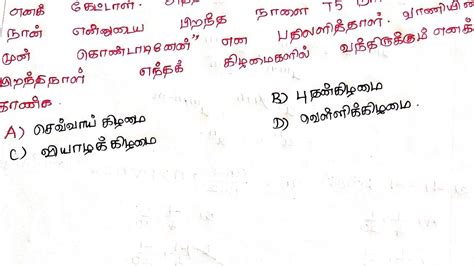 எனக் கேட்டாள்.
நான் என்னுடைய பிறந்த நாளை 75
முன் கொண்டாடினேன்" என பதிலளித்தாள். வாணியின்
பிறந்தநாள் எந்தக் கிழமைகளில் வந்திருக்கும் எனக்
காண்க.
A) செவ்வாய் கிழமை
B) புதன்கிழமை
C) வியாழக் கிழமை
D) வெள்ளிக்கிழமை.